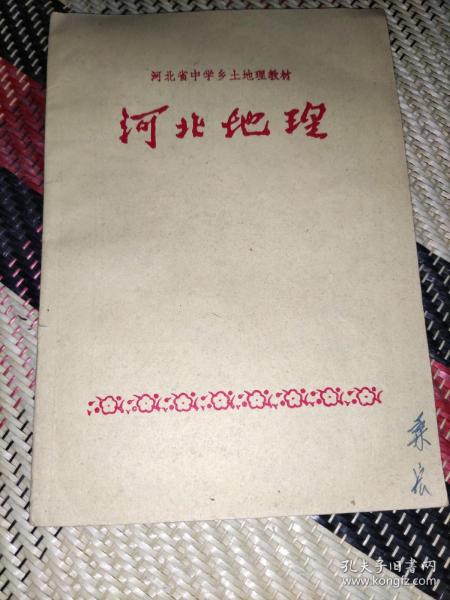 河北省中学乡土地理教材
河北地理
孔夫子旧书网
www.kongfz.com